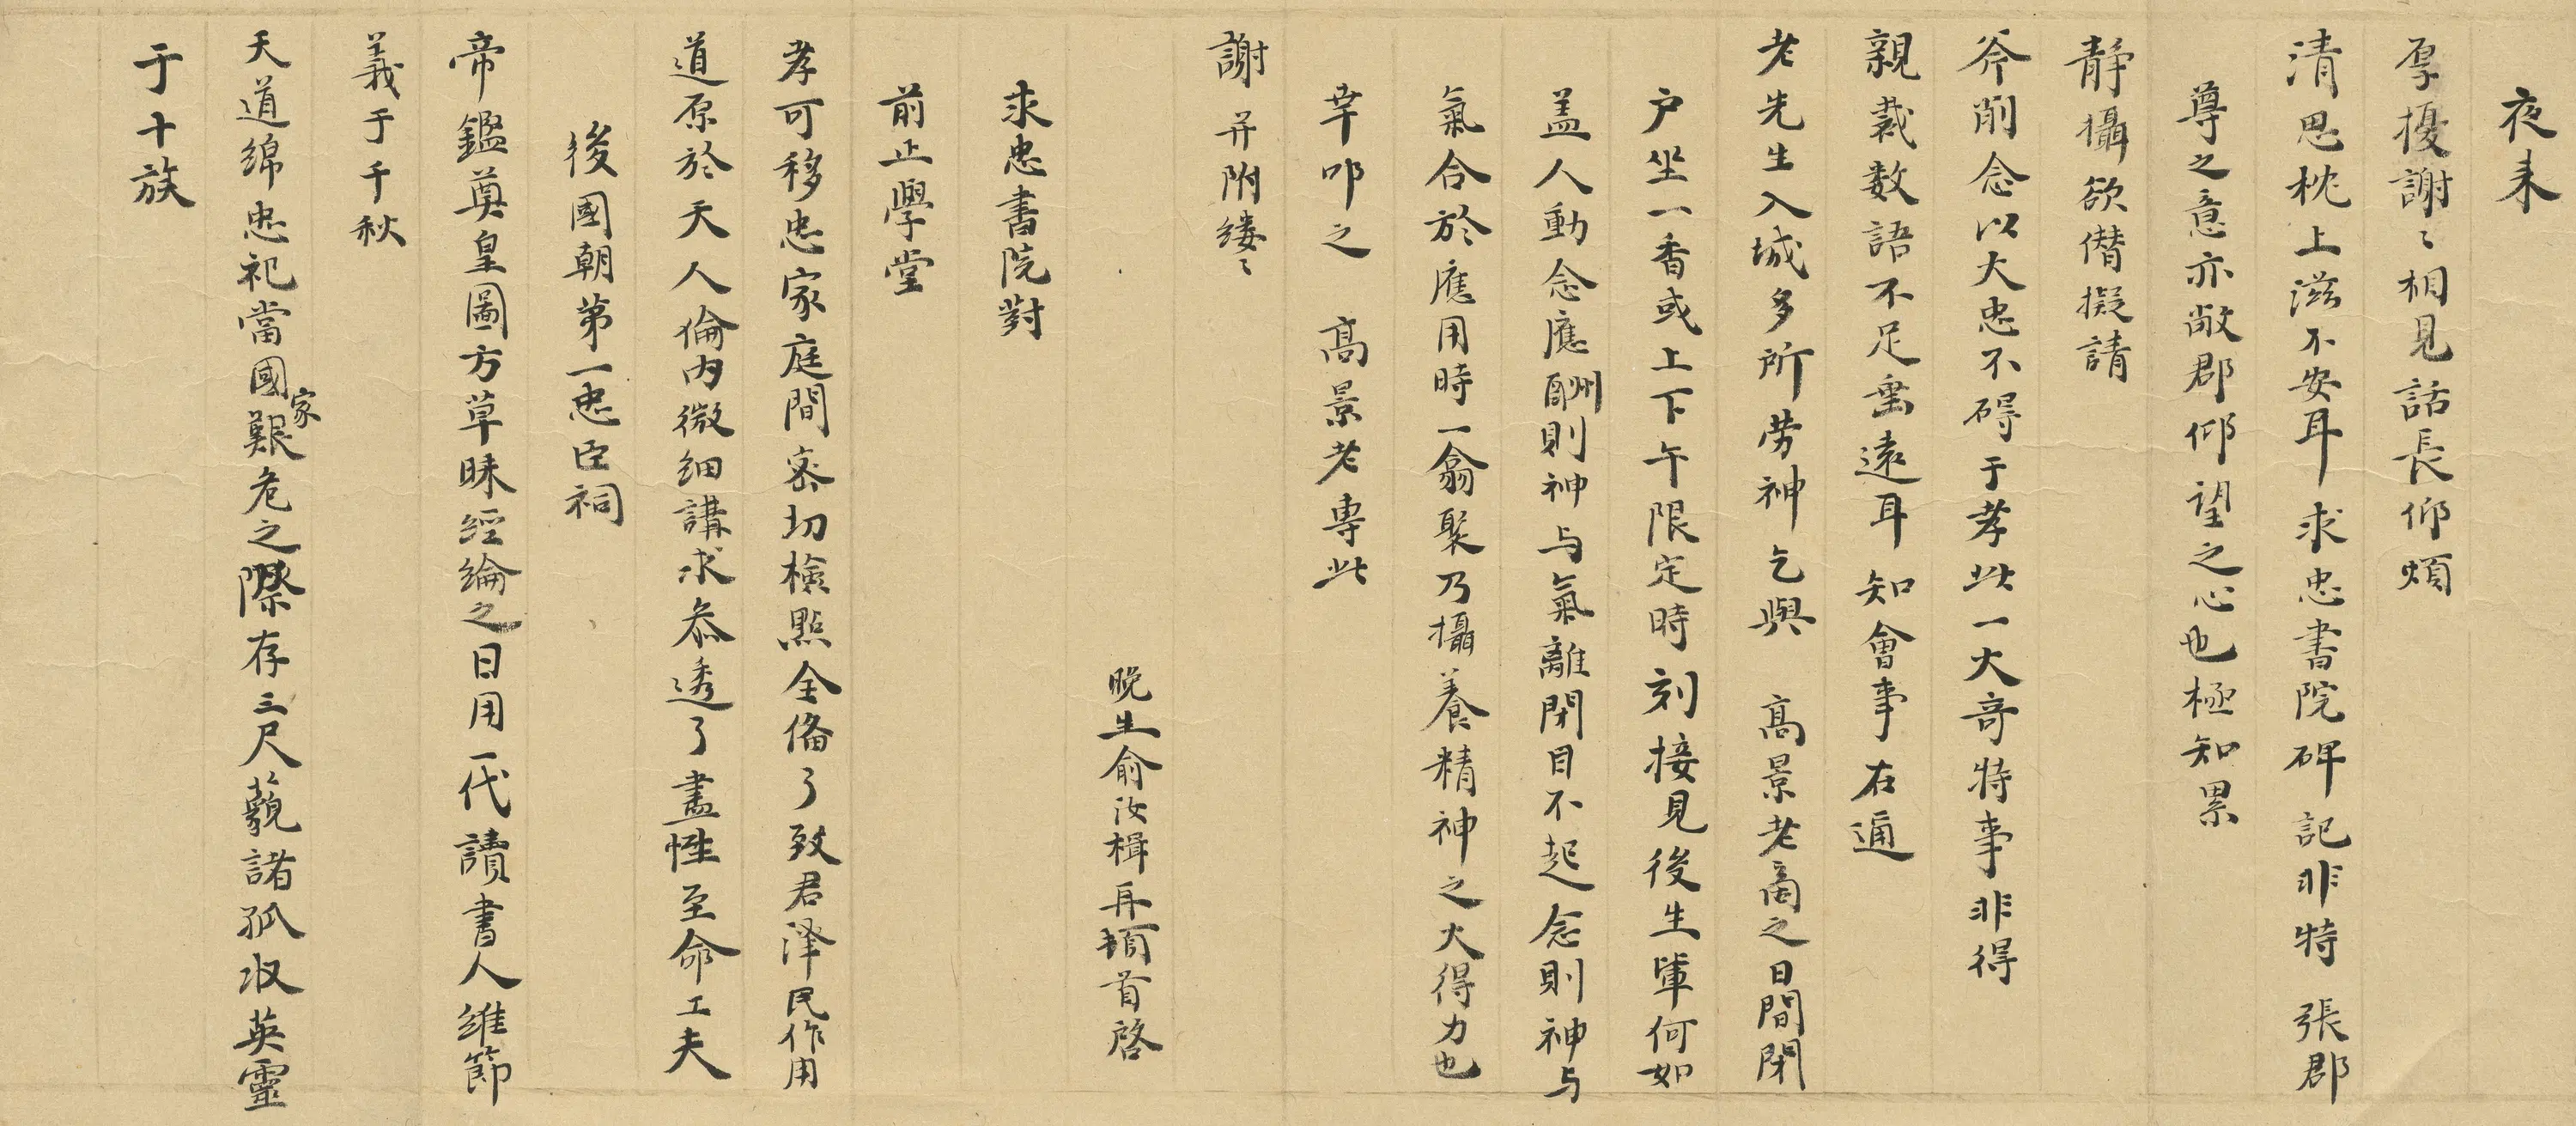 夜来
厚擾謝〻相見話長仰煩
清思枕上滋不安耳求忠書院碑記非特 張郡
尊之意亦敝郡仰望之心也極知累
静攝欲僭擬請
斧削念以大忠不碍于孝此一大奇特事非得
親裁数語不足垂遠耳知會事在通
老先生入城多所劳神乞與 髙景老啇之日間閉
户坐一香或上下午限定時刻接見後生軰何如
盖人動念應酬則神与氣離閉目不起念則神与
氣合於應用時一翕聚乃攝養精神之大得力也
幸叩之 髙景老專此
謝并附縷〻
晚生俞汝楫再頓首啓
求忠書院對
前正學堂
孝可移忠家庭間密切檢點全備了致君泽民作用
道原於天人倫内微细講求叅透了盡性至命工夫
後國朝第一忠臣祠
帝鑑奠皇圖方草昧經綸之日用一代讀書人維節
義于千秋
天道綿忠祀當國家艱危之際存三尺藐諸孤収英靈
于十族